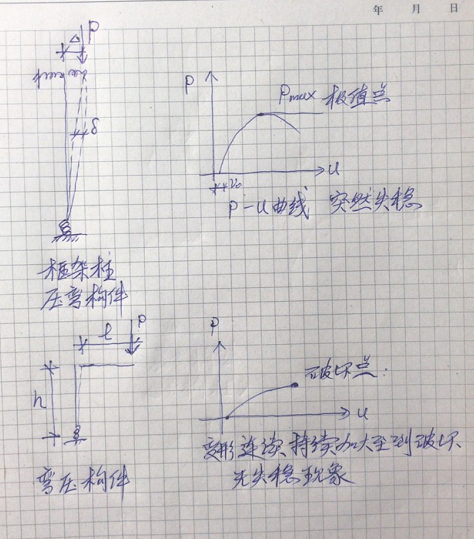 年 月 日
P
Δ
δ
P
Pmax 极值点
u
P-u曲线 突然失稳
框架柱
压弯构件
P
l
h
P
破坏点.
u
变形连续持续加大至到破坏
无失稳现象
弯压构件